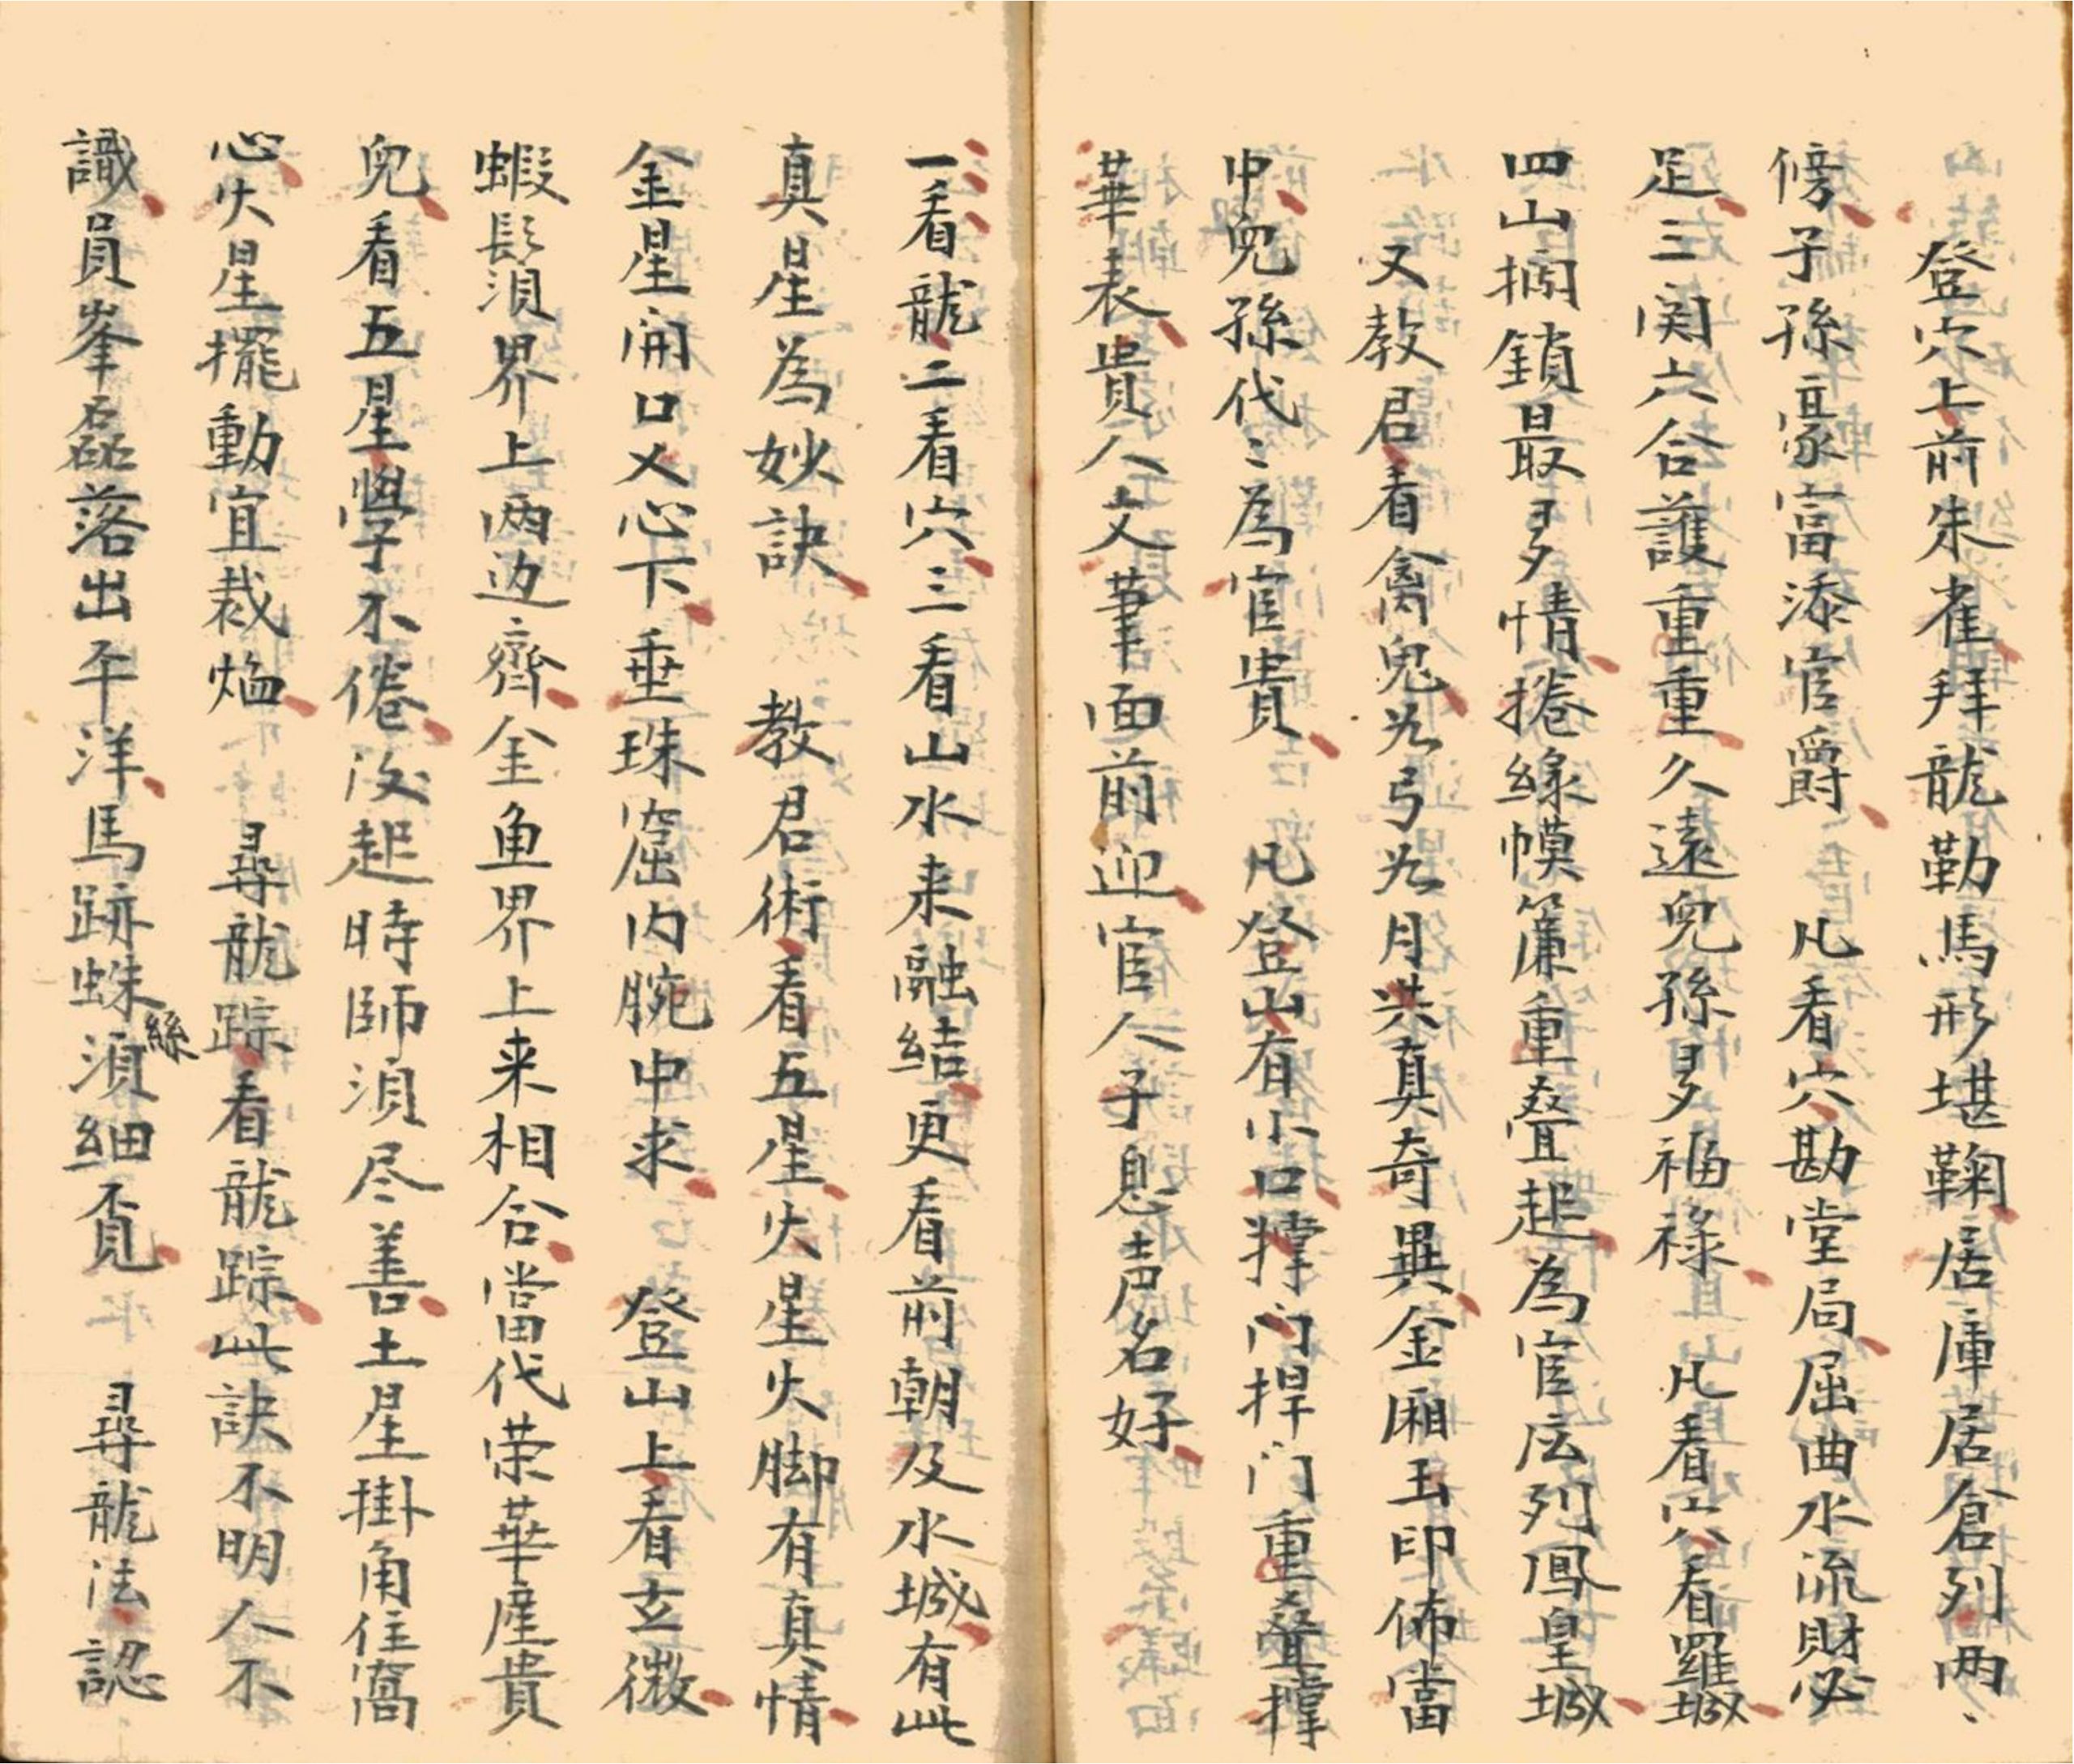 登穴上前朱雀拜龍勒馬形堪鞠居庫居倉列両、
傍子孫豪富添官爵　凡看穴勘堂局屈曲水流財必
足三関六合護重重久遠兒孫多福祿　凡看穴看羅城
四山捆鎖最多情捲綠幙簾重疊起為官庒列鳳皇城
又教君看禽鬼為弓為月洪真奇異金厢玉印佈當
中兒孫代〻為官貴　凡登山有小口撑门捍门重疊撑
華表貴人文筆面前迎官人子息声名好
一看龍二看穴三看山水来融結更看前朝及水城有此
真星為妙訣　教君術看五星火星火脚有真情
金星開口乂心下垂珠窟内腕中求　登山上看玄微
蝦髭湏界上両边齊金魚界上来相合當代荣華產貴
兒看五星學不倦汝起時師湏尽善土星掛角住窩
心火星擺動宜裁㷔　尋龍踪看龍踪此訣不明人不
識員峯磊落出平洋馬跡蛛絲湏細覔　尋龍法認